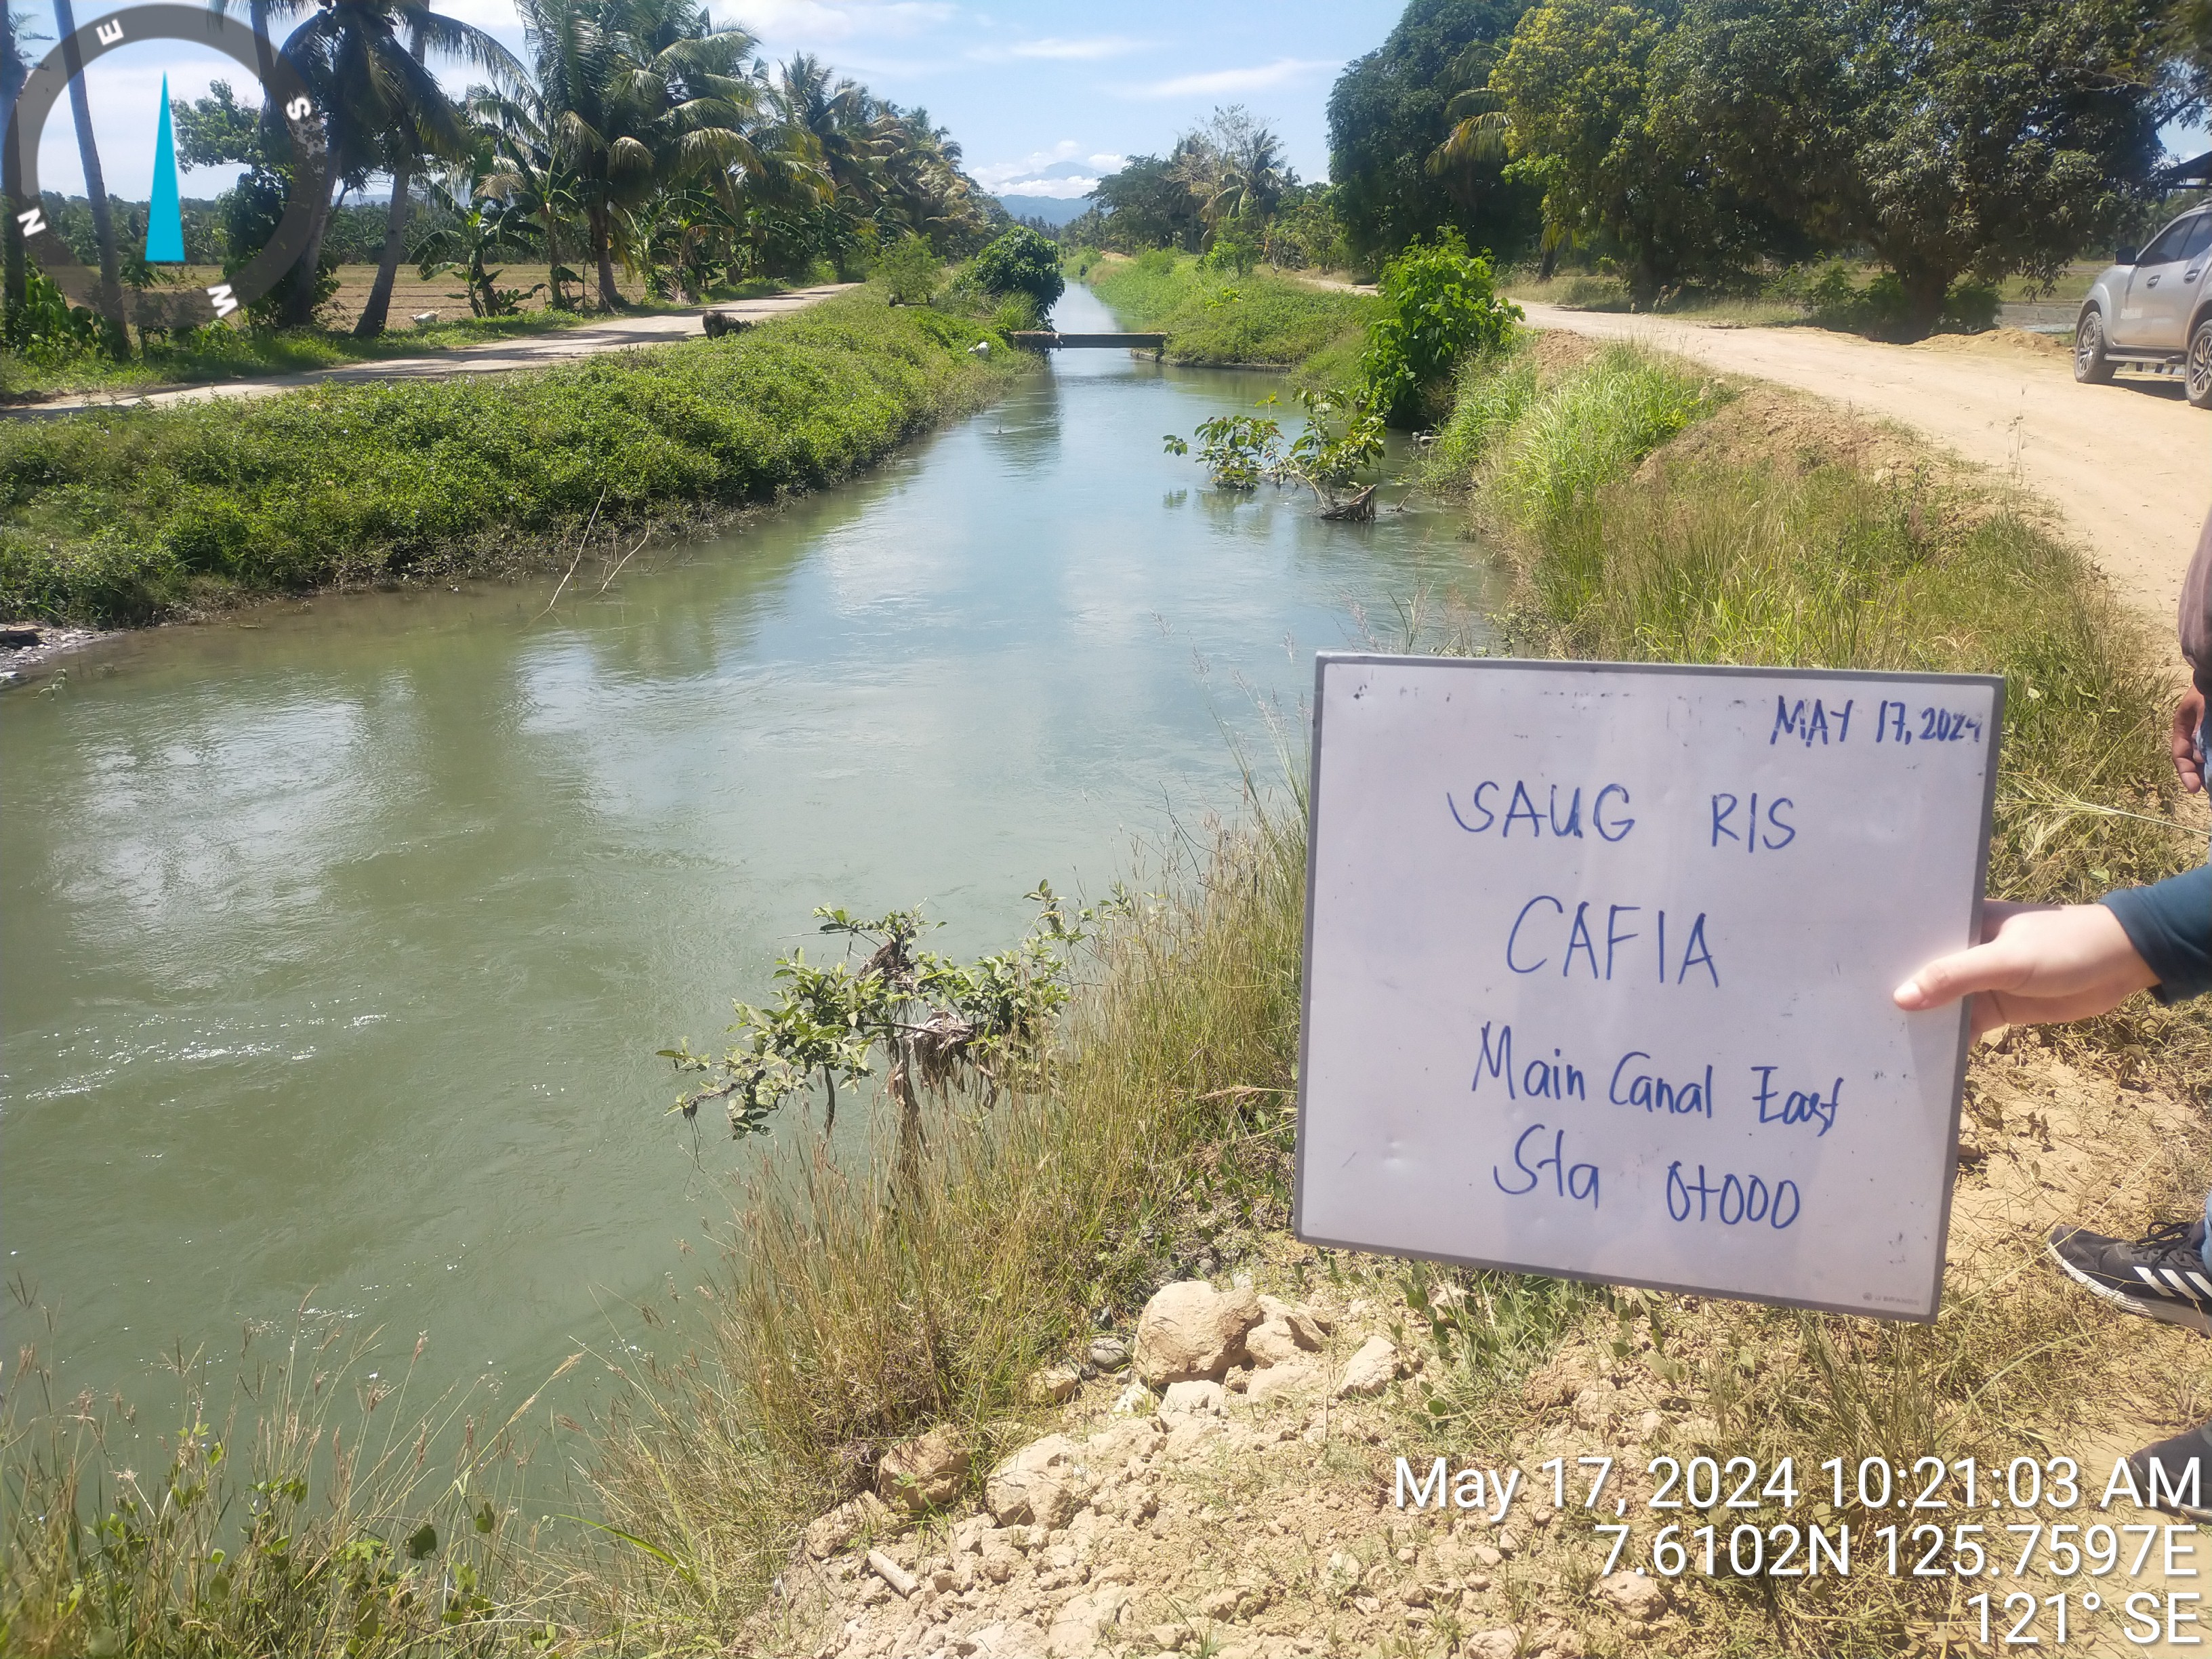 E
S
N
W
MAY 17, 2024
SAUG RIS
CAFIA
Main Canal East
Sta 0+000
U BRANDS
May 17, 2024 10:21:03 AM
7.6102N 125.7597E
121° SE